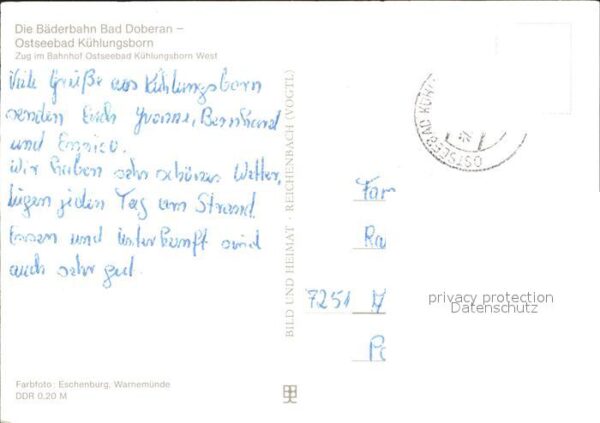 Die Bäderbahn Bad Doberan –
Ostseebad Kühlungsborn
Zug im Bahnhof Ostseebad Kühlungsborn West
Viele Grüße aus Kühlungsborn
senden Euch Yvonne, Bernhard
und Enrico.
Wir haben sehr schönes Wetter,
liegen jeden Tag am Strand.
Essen und Unterkunft sind
auch sehr gut.
Farbfoto: Eschenburg, Warnemünde
DDR 0.20 M
BILD UND HEIMAT · REICHENBACH (VOGTL)
OSTSEEBAD KÜH
Fam
Ra
7251
privacy protection
Datenschutz